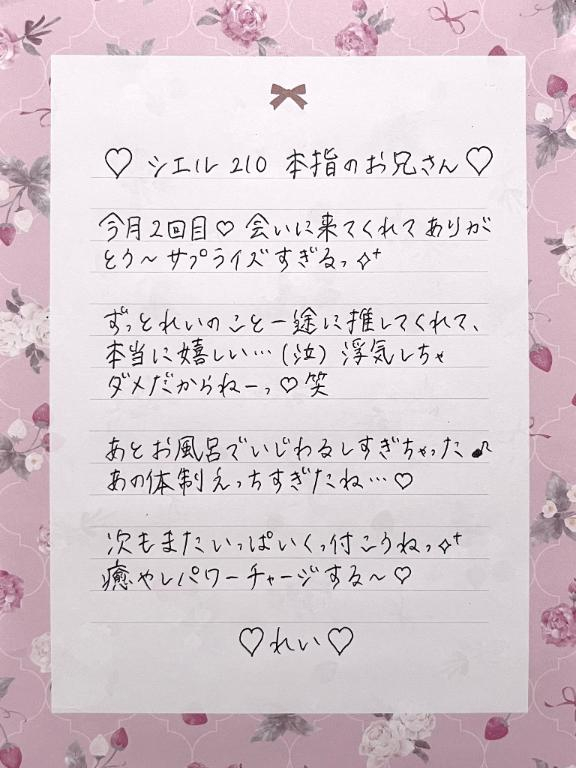 ♡ シエル 210 本指のお兄さん♡
今月2回目♡ 会いに来てくれて ありが
とう〜 サプライズすぎるっ✧⁺
ずっとれいのこと一途に推してくれて、
本当に嬉しい…(泣) 浮気しちゃ
ダメだからねーっ♡笑
あとお風呂でいじわるしすぎちゃった♪
あの体制えっちすぎたね…♡
次もまたいっぱいくっ付こうねっ✧⁺
癒やしパワーチャージする〜♡
♡れい♡